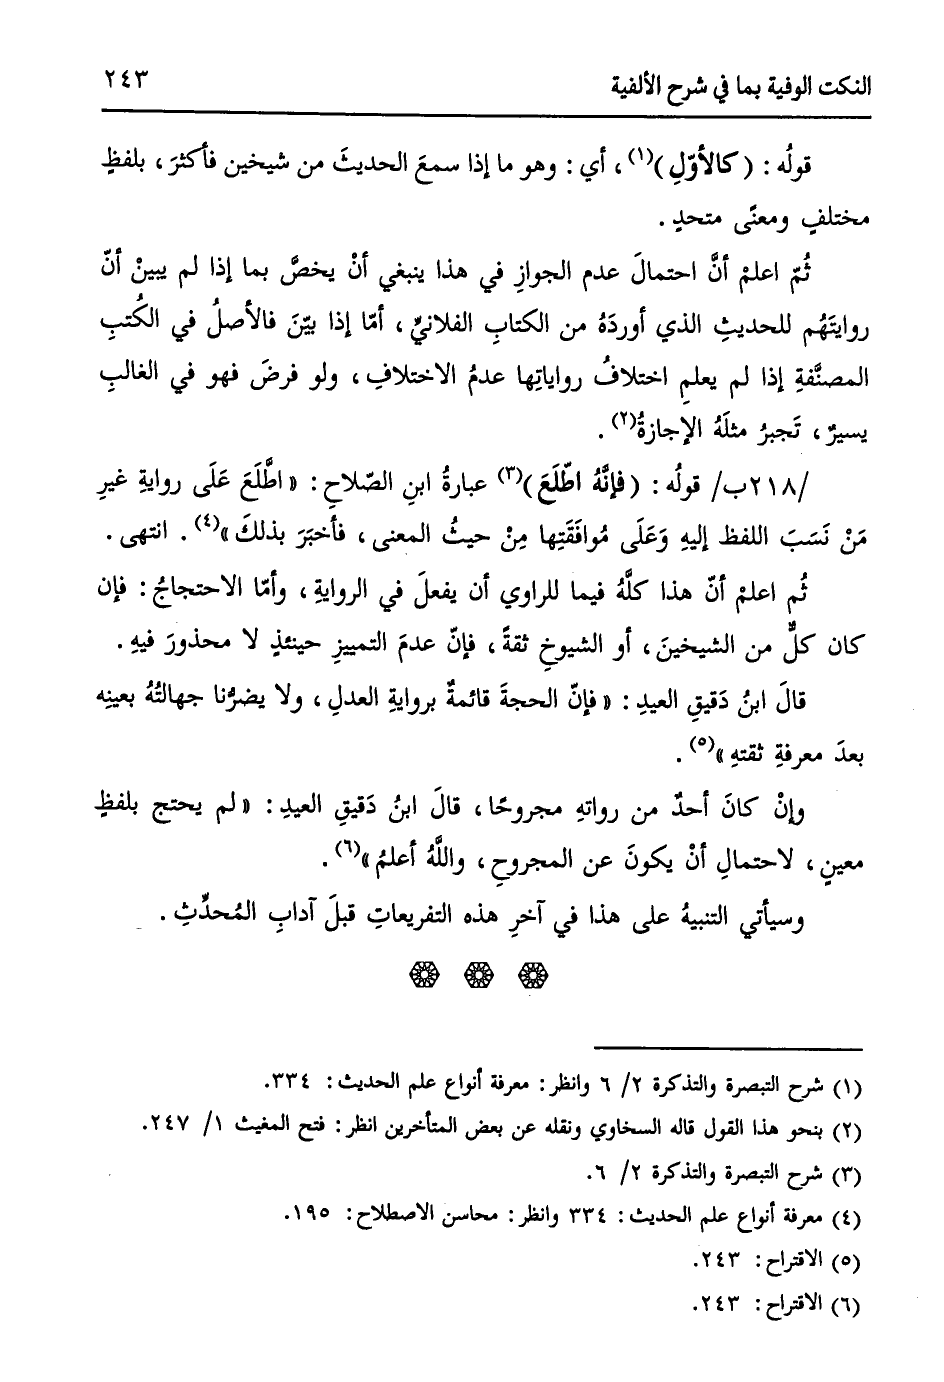 النكت الوفية بما في شرح الألفية ٢٤٣
قولُه : ( كالأوّلِ )(١) ، أي : وهو ما إذا سمعَ الحديثَ من شيخين فأكثرَ ، بلفظٍ
مختلفٍ ومعنًى متحدٍ .
ثُمّ اعلمْ أنَّ احتمالَ عدم الجوازِ في هذا ينبغي أنْ يخصَّ بما إذا لم يبينْ أنّ
روايتَهُم للحديثِ الذي أوردَهُ من الكتابِ الفلانيِّ ، أمّا إذا بيّنَ فالأصلُ في الكُتبِ
المصنَّفةِ إذا لم يعلمِ اختلافُ رواياتِها عدمُ الاختلافِ ، ولو فرضَ فهو في الغالبِ
يسيرٌ ، تَجبرُ مثلَهُ الإجازةُ(٢) .
/٢١٨ب/ قولُه : ( فإنَّهُ اطّلَعَ )(٣) عبارةُ ابنِ الصّلاحِ : « اطَّلَعَ عَلَى روايةِ غيرِ
مَنْ نَسَبَ اللفظ إليهِ وَعَلَى مُوافَقَتِها مِنْ حيثُ المعنى ، فأخبَرَ بذلكَ »(٤) . انتهى .
ثُم اعلمْ أنّ هذا كلَّهُ فيما للراوي أن يفعلَ في الروايةِ ، وأمّا الاحتجاجُ : فإن
كان كلٌّ من الشيخينَ ، أو الشيوخِ ثقةً ، فإنّ عدمَ التمييزِ حينئذٍ لا محذورَ فيهِ .
قالَ ابنُ دَقيقِ العيدِ : « فإنّ الحجةَ قائمةٌ بروايةِ العدلِ ، ولا يضرُّنا جهالتُهُ بعينِه
بعدَ معرفةِ ثقتهِ »(٥) .
وإنْ كانَ أحدٌ من رواتهِ مجروحًا ، قالَ ابنُ دَقيقِ العيدِ : « لم يحتج بلفظٍ
معينٍ ، لاحتمالِ أنْ يكونَ عن المجروحِ ، واللَّهُ أعلمُ »(٦) .
وسيأتي التنبيهُ على هذا في آخرِ هذه التفريعاتِ قبلَ آدابِ المُحدِّثِ .
(١) شرح التبصرة والتذكرة ٢/ ٦ وانظر : معرفة أنواع علم الحديث : ٣٣٤.
(٢) بنحو هذا القول قاله السخاوي ونقله عن بعض المتأخرين انظر : فتح المغيث ١/ ٢٤٧.
(٣) شرح التبصرة والتذكرة ٢/ ٦.
(٤) معرفة أنواع علم الحديث : ٣٣٤ وانظر : محاسن الاصطلاح : ١٩٥.
(٥) الاقتراح : ٢٤٣.
(٦) الاقتراح : ٢٤٣.